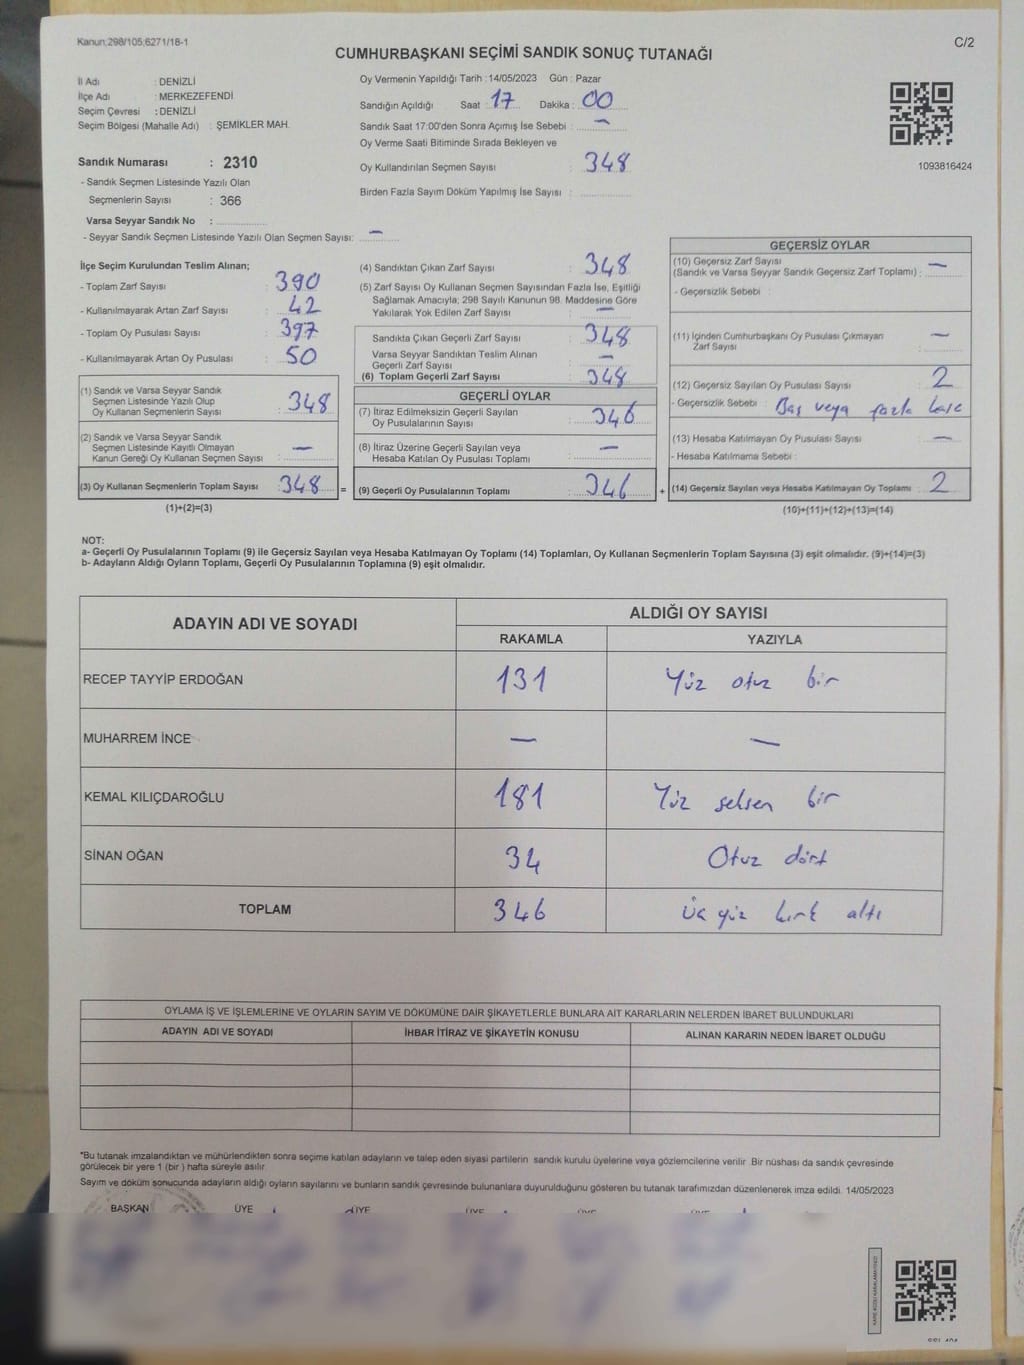 Kanun:298/105;6271/18-1
C/2
CUMHURBAŞKANI SEÇİMİ SANDIK SONUÇ TUTANAĞI
İl Adı : DENİZLİ
İlçe Adı : MERKEZEFENDİ
Seçim Çevresi : DENİZLİ
Seçim Bölgesi (Mahalle Adı) : ŞEMİKLER MAH.
Sandık Numarası : 2310
- Sandık Seçmen Listesinde Yazılı Olan
Seçmenlerin Sayısı : 366
Varsa Seyyar Sandık No :
- Seyyar Sandık Seçmen Listesinde Yazılı Olan Seçmen Sayısı: —
Oy Vermenin Yapıldığı Tarih :14/05/2023 Gün : Pazar
Sandığın Açıldığı Saat : 17 Dakika : 00
Sandık Saat 17:00'den Sonra Açımış İse Sebebi : —
Oy Verme Saati Bitiminde Sırada Bekleyen ve
Oy Kullandırılan Seçmen Sayısı : 348
Birden Fazla Sayım Döküm Yapılmış İse Sayısı :
1093816424
İlçe Seçim Kurulundan Teslim Alınan;
- Toplam Zarf Sayısı : 390
- Kullanılmayarak Artan Zarf Sayısı : 42
- Toplam Oy Pusulası Sayısı : 397
- Kullanılmayarak Artan Oy Pusulası : 50
(1) Sandık ve Varsa Seyyar Sandık
Seçmen Listesinde Yazılı Olup
Oy Kullanan Seçmenlerin Sayısı : 348
(2) Sandık ve Varsa Seyyar Sandık
Seçmen Listesinde Kayıtlı Olmayan
Kanun Gereği Oy Kullanan Seçmen Sayısı : —
(3) Oy Kullanan Seçmenlerin Toplam Sayısı : 348 =
(1)+(2)=(3)
(4) Sandıktan Çıkan Zarf Sayısı : 348
(5) Zarf Sayısı Oy Kullanan Seçmen Sayısından Fazla İse, Eşitliği
Sağlamak Amacıyla; 298 Sayılı Kanunun 98. Maddesine Göre
Yakılarak Yok Edilen Zarf Sayısı : —
Sandıkta Çıkan Geçerli Zarf Sayısı : 348
Varsa Seyyar Sandıktan Teslim Alınan
Geçerli Zarf Sayısı : —
(6) Toplam Geçerli Zarf Sayısı : 348
GEÇERLİ OYLAR
(7) İtiraz Edilmeksizin Geçerli Sayılan
Oy Pusulalarının Sayısı : 346
(8) İtiraz Üzerine Geçerli Sayılan veya
Hesaba Katılan Oy Pusulası Toplamı : —
(9) Geçerli Oy Pusulalarının Toplamı : 346 +
GEÇERSİZ OYLAR
(10) Geçersiz Zarf Sayısı
(Sandık ve Varsa Seyyar Sandık Geçersiz Zarf Toplamı) : —
- Geçersizlik Sebebi :
(11) İçinden Cumhurbaşkanı Oy Pusulası Çıkmayan
Zarf Sayısı : —
(12) Geçersiz Sayılan Oy Pusulası Sayısı : 2
- Geçersizlik Sebebi : Boş veya fazla
(13) Hesaba Katılmayan Oy Pusulası Sayısı : —
- Hesaba Katılmama Sebebi :
(14) Geçersiz Sayılan veya Hesaba Katılmayan Oy Toplamı : 2
(10)+(11)+(12)+(13)=(14)
NOT:
a- Geçerli Oy Pusulalarının Toplamı (9) ile Geçersiz Sayılan veya Hesaba Katılmayan Oy Toplamı (14) Toplamları, Oy Kullanan Seçmenlerin Toplam Sayısına (3) eşit olmalıdır. (9)+(14)=(3)
b- Adayların Aldığı Oyların Toplamı, Geçerli Oy Pusulalarının Toplamına (9) eşit olmalıdır.
ADAYIN ADI VE SOYADI
ALDIĞI OY SAYISI
RAKAMLA YAZIYLA
RECEP TAYYİP ERDOĞAN 131 Yüz otuz bir
MUHARREM İNCE — —
KEMAL KILIÇDAROĞLU 181 Yüz seksen bir
SİNAN OĞAN 34 Otuz dört
TOPLAM 346 Üç yüz kırk altı
OYLAMA İŞ VE İŞLEMLERİNE VE OYLARIN SAYIM VE DÖKÜMÜNE DAİR ŞİKAYETLERLE BUNLARA AİT KARARLARIN NELERDEN İBARET BULUNDUKLARI
ADAYIN ADI VE SOYADI İHBAR İTİRAZ VE ŞİKAYETİN KONUSU ALINAN KARARIN NEDEN İBARET OLDUĞU
*Bu tutanak imzalandıktan ve mühürlendikten sonra seçime katılan adayların ve talep eden siyasi partilerin sandık kurulu üyelerine veya gözlemcilerine verilir. Bir nüshası da sandık çevresinde
görülecek bir yere 1 (bir ) hafta süreyle asılır.
Sayım ve döküm sonucunda adayların aldığı oyların sayılarını ve bunların sandık çevresinde bulunanlara duyurulduğunu gösteren bu tutanak tarafımızdan düzenlenerek imza edildi. 14/05/2023
BAŞKAN ÜYE ÜYE ÜYE